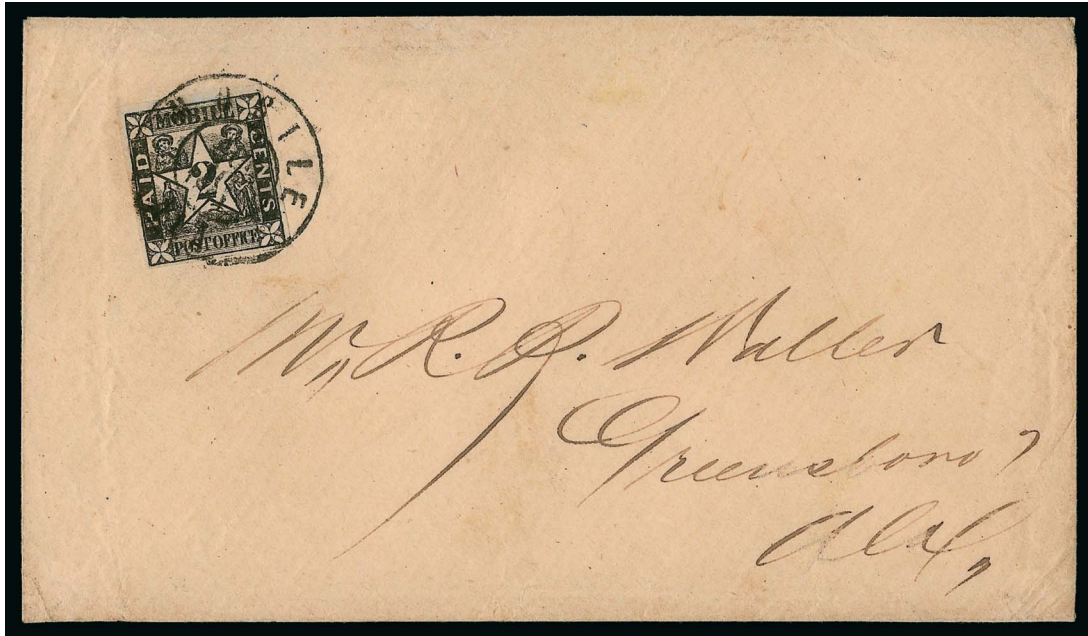 MOBILE
PAID
2
CENTS
POST OFFICE
ILE
Mr, R. P. Waller
Greensboro'
Ala,